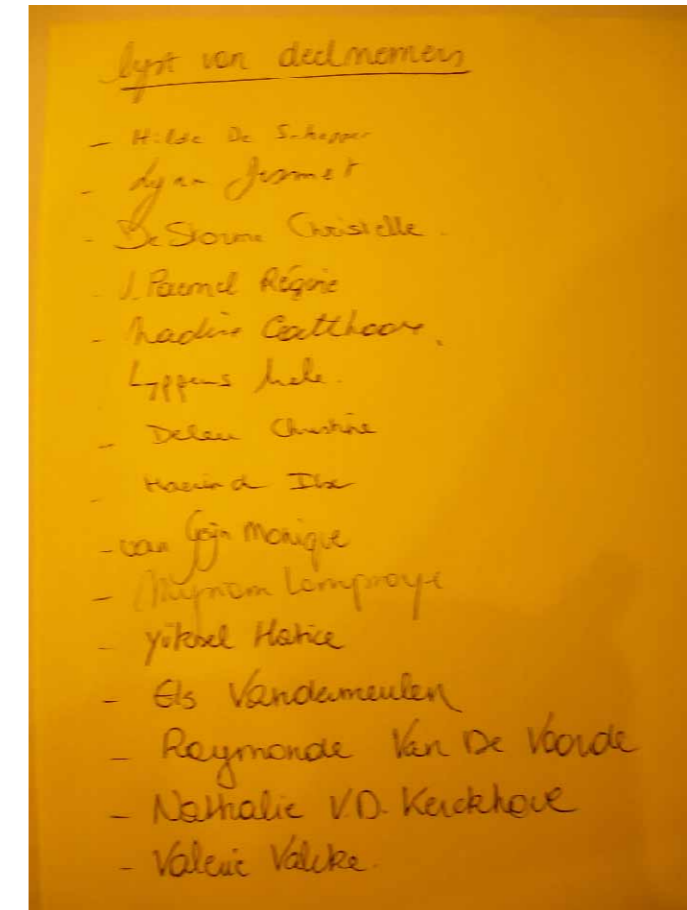 lyst van deelnemers
- Hilde De Schepper
- Lynn
- De Storme Christelle.
- V. Paemel Régine
- Nadine Catthoor.
Lyppens
- Deleu Christine
- Ilse
- van Gijn Monique
- Myriam Lamproye
- Yüksel Hatice
- Els Vandermeulen
- Raymonde Van De Voorde
- Nathalie V.D. Kerckhove
- Valerie Valcke.